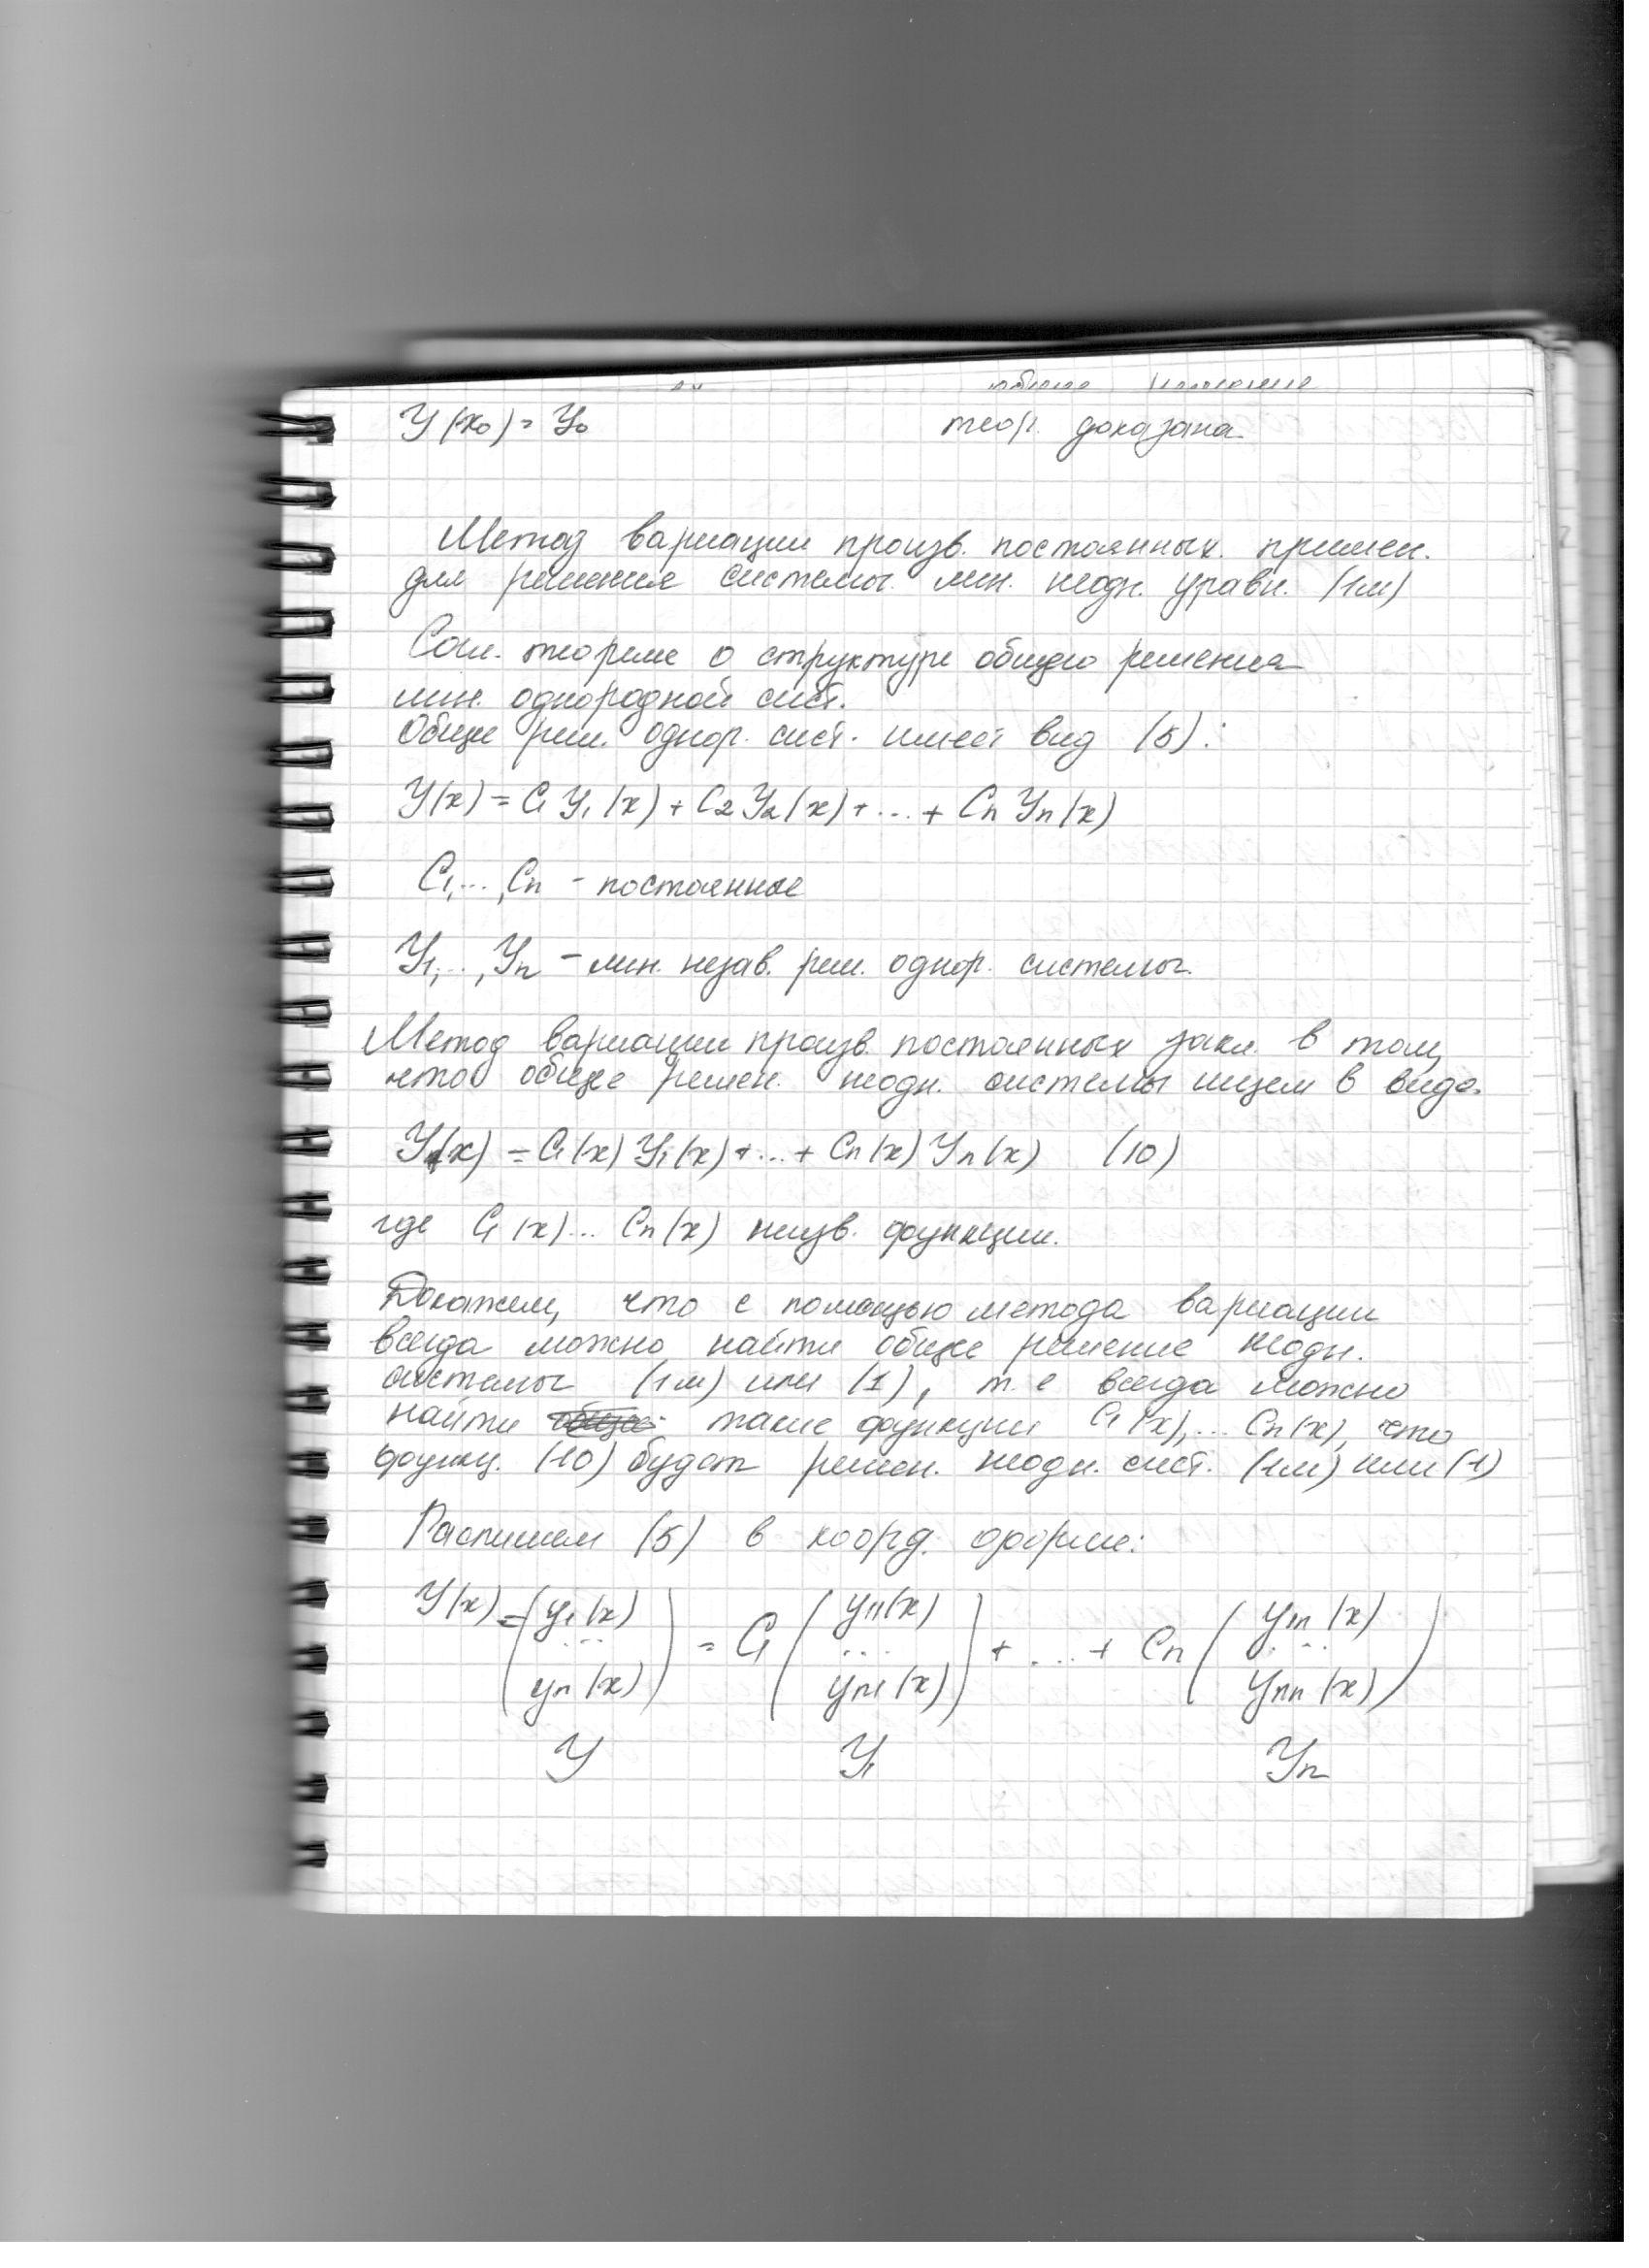 Y(x₀) = Y₀ теор. доказана
Метод вариации произв. постоянных примен.
для решения системы лин. неодн. уравн. (1м)
Согл. теореме о структуре общего решения
лин. однородной сист.
Общее реш. однор. сист. имеет вид (5):
Y(x) = C₁ Y₁(x) + C₂ Y₂(x) + ... + Cn Yn(x)
C₁, ..., Cn - постоянные
Y₁, ..., Yn - лин. незав. реш. однор. системы.
Метод вариации произв. постоянных закл. в том,
что общее решен. неодн. системы ищем в виде.
Y(x) = C₁(x) Y₁(x) + ... + Cn(x) Yn(x) (10)
где C₁(x) ... Cn(x) неизв. функции.
Докажем, что с помощью метода вариации
всегда можно найти общее решение неодн.
системы (1м) или (1), т.е всегда можно
найти такие функции C₁(x), ... Cn(x), что
функц. (10) будет решен. неодн. сист. (1м) или (1)
Распишем (5) в коорд. форме:
Y(x) = (y₁(x) ... yn(x)) = C₁ (y₁₁(x) ... yn₁(x)) + ... + Cn (y₁n(x) ... ynn(x))
Y Y₁ Yn